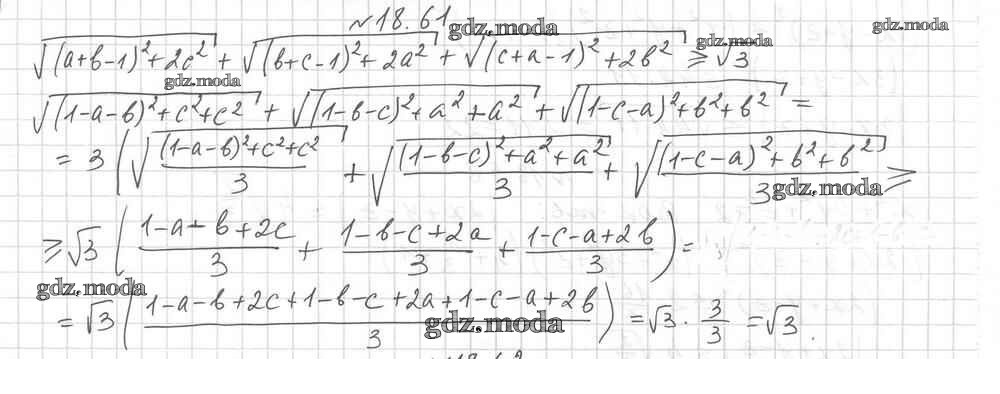 №18.61 gdz.moda
gdz.moda
√((a+b-1)²+2c²) + √((b+c-1)²+2a²) + √((c+a-1)²+2b²) ≥ √3 gdz.moda
gdz.moda
√((1-a-b)²+c²+c²) + √((1-b-c)²+a²+a²) + √((1-c-a)²+b²+b²) =
= 3 (√(((1-a-b)²+c²+c²)/3) + √(((1-b-c)²+a²+a²)/3) + √(((1-c-a)²+b²+b²)/3) ≥
gdz.moda
≥ √3 ((1-a-b+2c)/3 + (1-b-c+2a)/3 + (1-c-a+2b)/3) =
gdz.moda
= √3 ((1-a-b+2c+1-b-c+2a+1-c-a+2b)/3) = √3 · 3/3 = √3.
gdz.moda